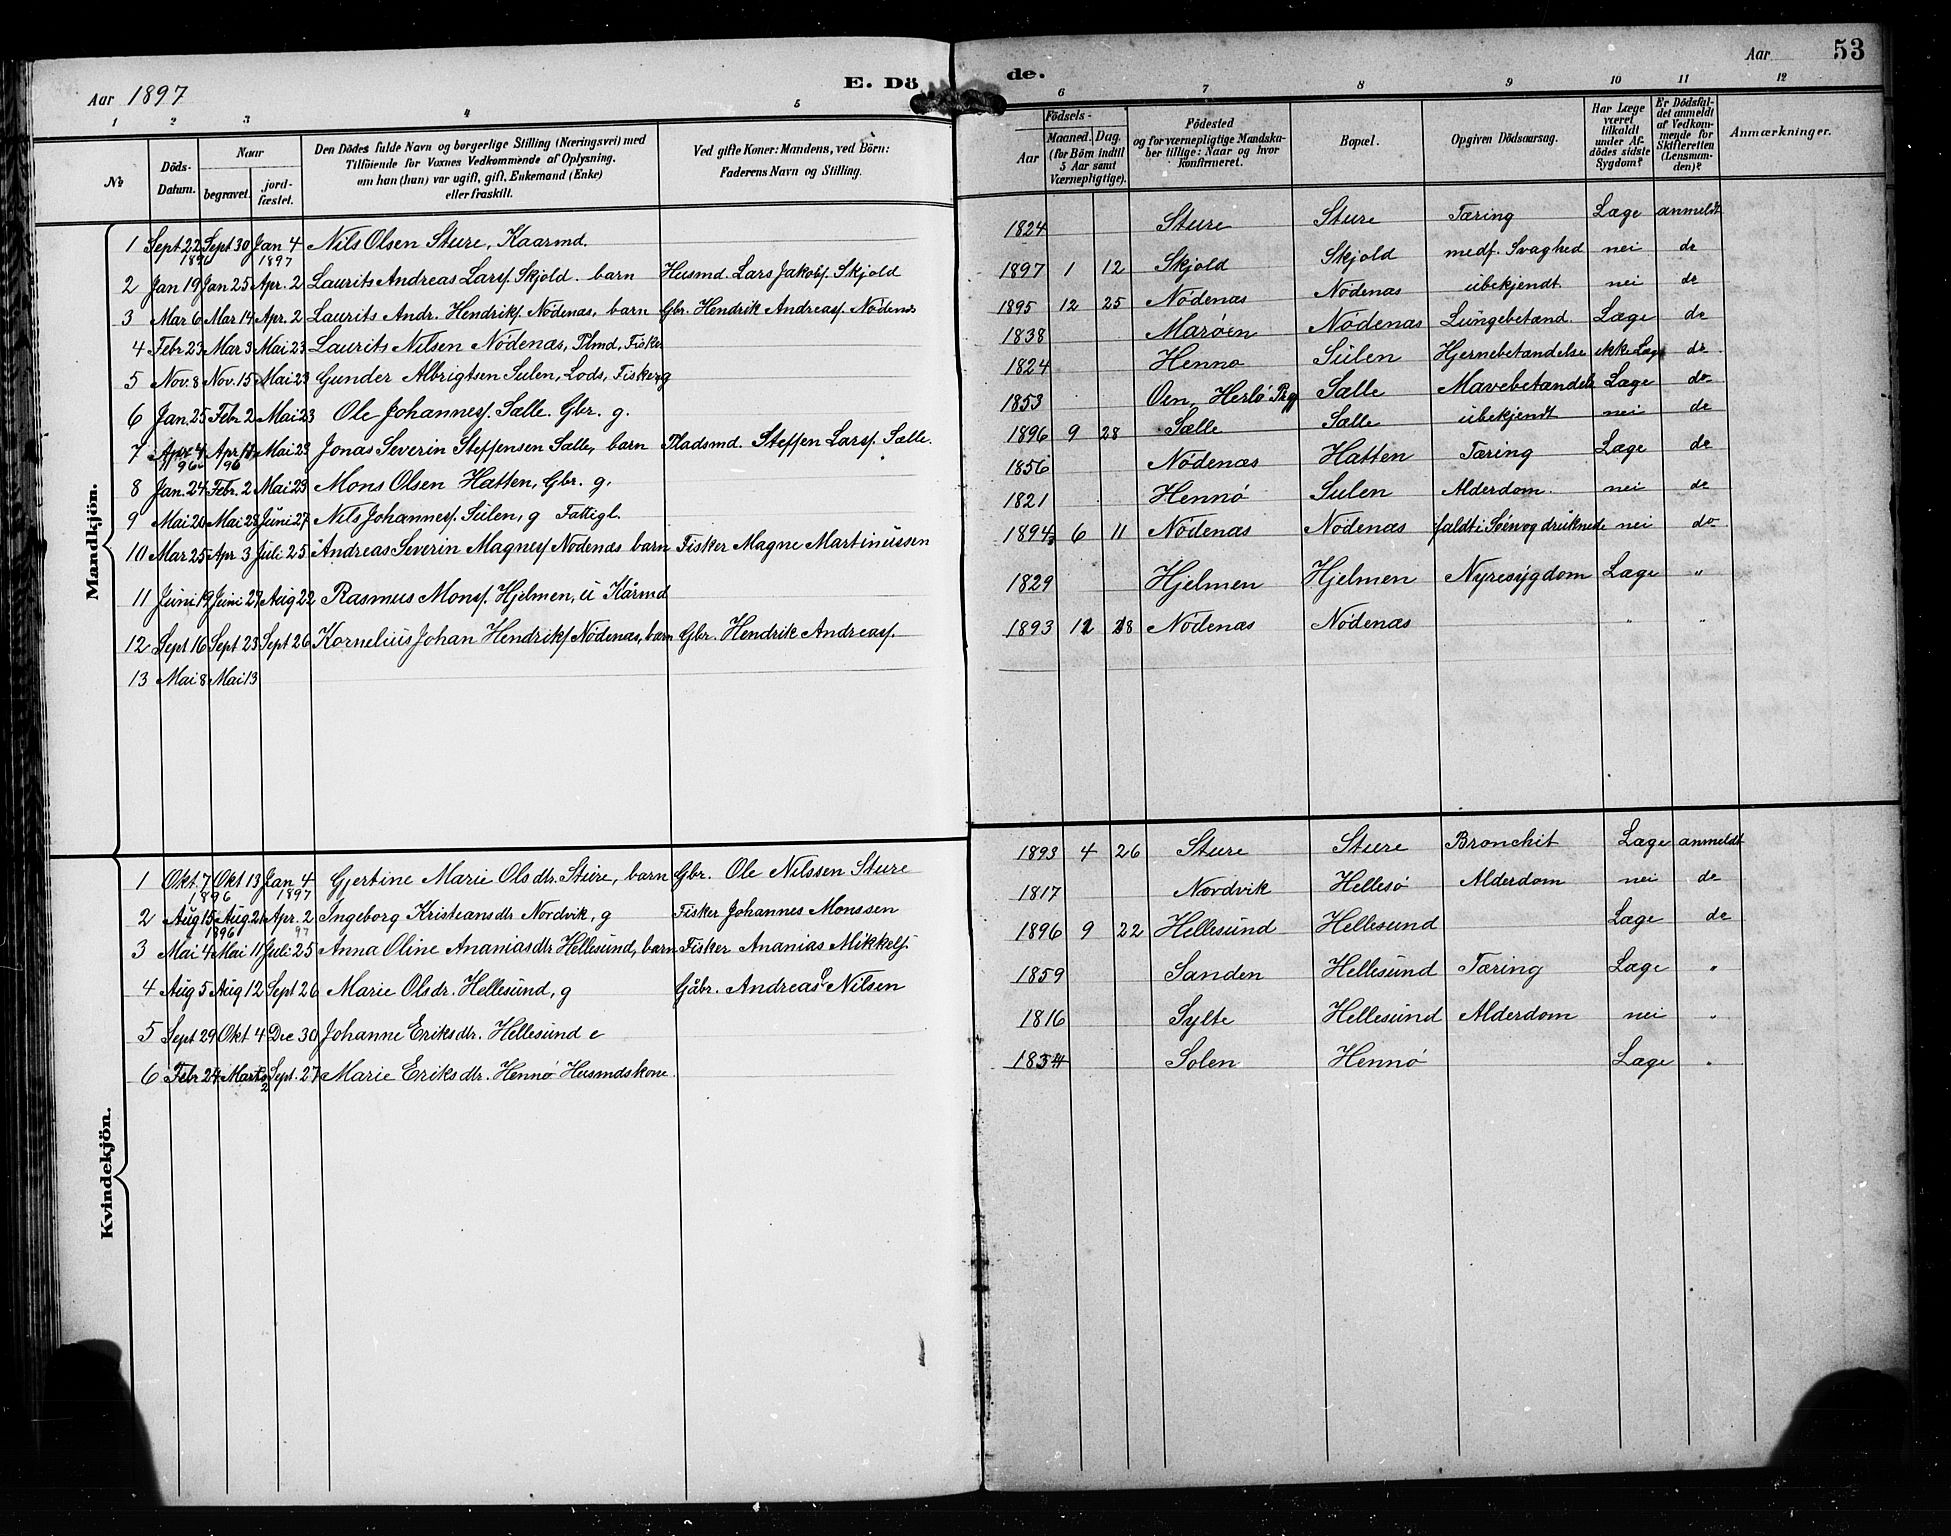 Aar 1897
E. Dö
1 2 3 4 5
No
Döds-Datum.
Naar
begravet. jord-fæstet.
Den Dödes fulde Navn og borgerlige Stilling (Næringsvei) med
Tilföiende for Voxnes Vedkommende af Oplysning,
om han (hun) var ugift, gift, Enkemand (Enke)
eller fraskilt.
Ved gifte Koner: Mandens, ved Börn:
Faderens Navn og Stilling.
Mandkjön.
1 Sept 22 1896 Sept 30 Jan 4 1897 Nils Olsen Sture, Kaarmd.
2 Jan 19 Jan 25 Apr. 2 Laurits Andreas Larsf. Skjold. barn Husmd Lars Jakobsf. Skjold
3 Mar 6 Mar 14 Apr. 2 Laurits Andr. Hendriksf. Nödenæs, barn Gbr. Hendrik Andreasf. Nödenæs
4 Febr 23 Mar 3 Mai 23 Laurits Nilsen Nödenæs, Plmd, Fisker
5 Nov. 8 Nov. 15 Mai 23 Gunder Albrigtsen Sulen, Lods, Fisker, g
6 Jan. 25 Febr 2 Mai 23 Ole Johannesf. Sælle. Gbr. g.
7 Apr 4 96 Apr. 96 Mai 23 Jonas Severin Steffensen Sælle, barn Pladsmd. Steffen Larsf. Sælle.
8 Jan. 24 Febr. 2 Mai 23 Mons Olsen Hatten, Gbr. g.
9 Mai 20 Mai 28 Juni 27 Nils Johannesf. Sulen, g Fattigl.
10 Mar 25 Apr 3 Juli 25 Andreas Severin Magnesf Nödenæs barn Fisker Magne Martinussen
11 Juni 19 Juni 27 Aug 22 Rasmus Monsf. Hjelmen, u Kårmd
12 Sept 16 Sept 23 Sept 26 Kornelius Johan Hendriksf Nödenæs, barn Gbr. Hendrik Andreasf.
13 Mai 8 Mai 13
Kvindekjön.
1 Okt. 7 1896 Okt 13 Jan 4 1897 Gjertine Marie Olsdtr. Sture, barn Gbr. Ole Nilssen Sture
2 Aug 15 1896 Aug 21 Apr. 2 97 Ingeborg Kristiansdtr Nordvik, g Fisker Johannes Monssen
3 Mai 4 Mai 11 Juli 25 Anna Oline Ananiasdtr Hellesund, barn Fisker Ananias Mikkelsf
4 Aug 5 Aug 12 Sept 26 Marie Olsdr. Hellesund, g Gåbr. Andreas Nilsen
5 Sept 29 Okt 4 Dec 30 Johanne Eriksdtr. Hellesund e
6 Febr 24 Marts 2 Sept. 27 Marie Eriksdtr. Hennö Husmdskone
de.
Aar 53
6 7 8 9 10 11 12
Födsels-
Aar
Maaned. Dag.
(for Börn indtil
5 Aar samt
Værnepligtige).
Födested
og for værnepligtige Mandska-
ber tillige: Naar og hvor
konfirmeret.
Bopæl.
Opgiven Dödsaarsag.
Har Læge
været
tilkaldt
under Af-
dödes sidste
Sygdom?
Er Dödsfal-
det anmeldt
af Vedkom-
mende for
Skifteretten
(Lensman-
den)?
Anmærkninger.
1824 Sture Sture Tæring Læge anmeldt
1897 1 12 Skjold Skjold medf. Svaghed nei do
1895 12 25 Nödenæs Nödenæs ubekjendt nei do
1838 Maröen Nödenæs Lungebetænd. Læge do
1824 Henno Sulen Hjernebetændelse ikke Læge do
1853 Oen, Herlö Prg Sælle Mavebetændels Læge do
1896 9 28 Sælle Sælle ubekjendt nei do
1856 Nödenæs Hatten Tæring Læge do
1821 Hennö Sulen Alderdom. nei do
1894 6 11 Nödenæs Nödenæs faldt i Söen og druknede nei do
1829 Hjelmen Hjelmen Nyresygdom Læge "
1893 18 Nödenæs Nödenæs " "
1893 4 26 Sture Sture Bronchit Læge anmeldt
1817 Nordvik Hellesö Alderdom nei do
1896 9 22 Hellesund Hellesund Læge do
1859 Sanden Hellesund Tæring Læge "
1816 Sylte Hellesund Alderdom nei "
1834 Solen Hennö Læge "